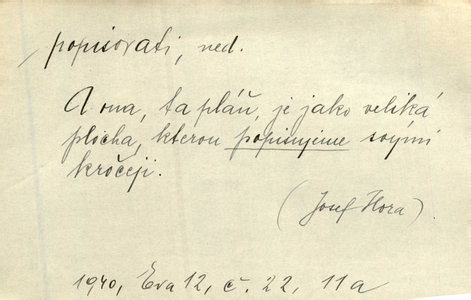 popisovati, ned.
A ona, ta pláň, je jako veliká
plocha, kterou popisujeme svými
kročeji.
(Josef Hora).
1940, Eva 12, č. 22, 11a